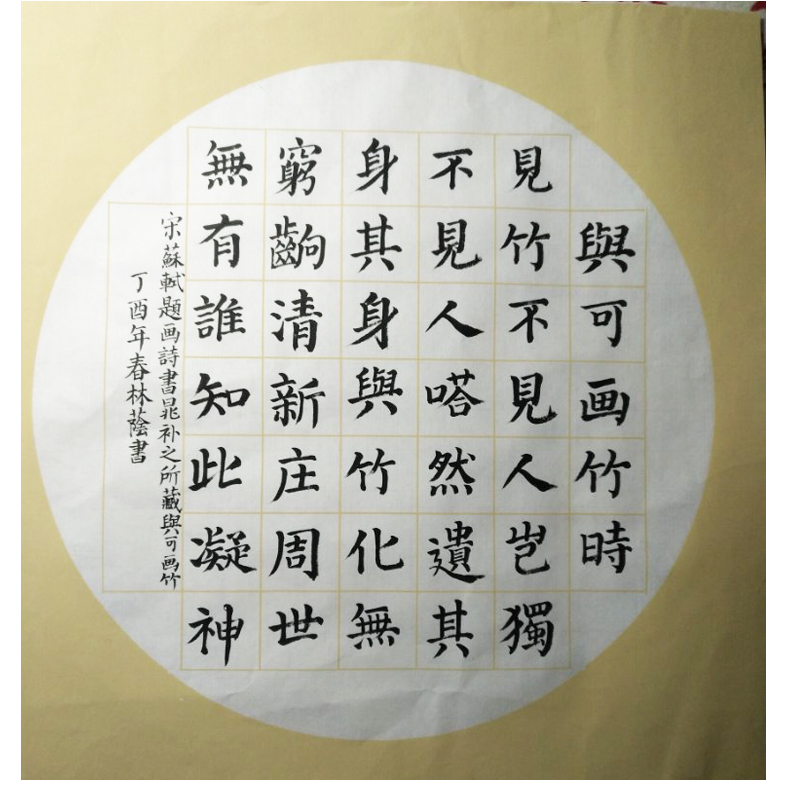 與可画竹時
見竹不見人岂獨
不見人嗒然遺其
身其身與竹化無
窮齣清新庄周世
無有誰知此凝神
宋蘇軾題画詩書晁补之所藏與可画竹
丁酉年春林蔭書